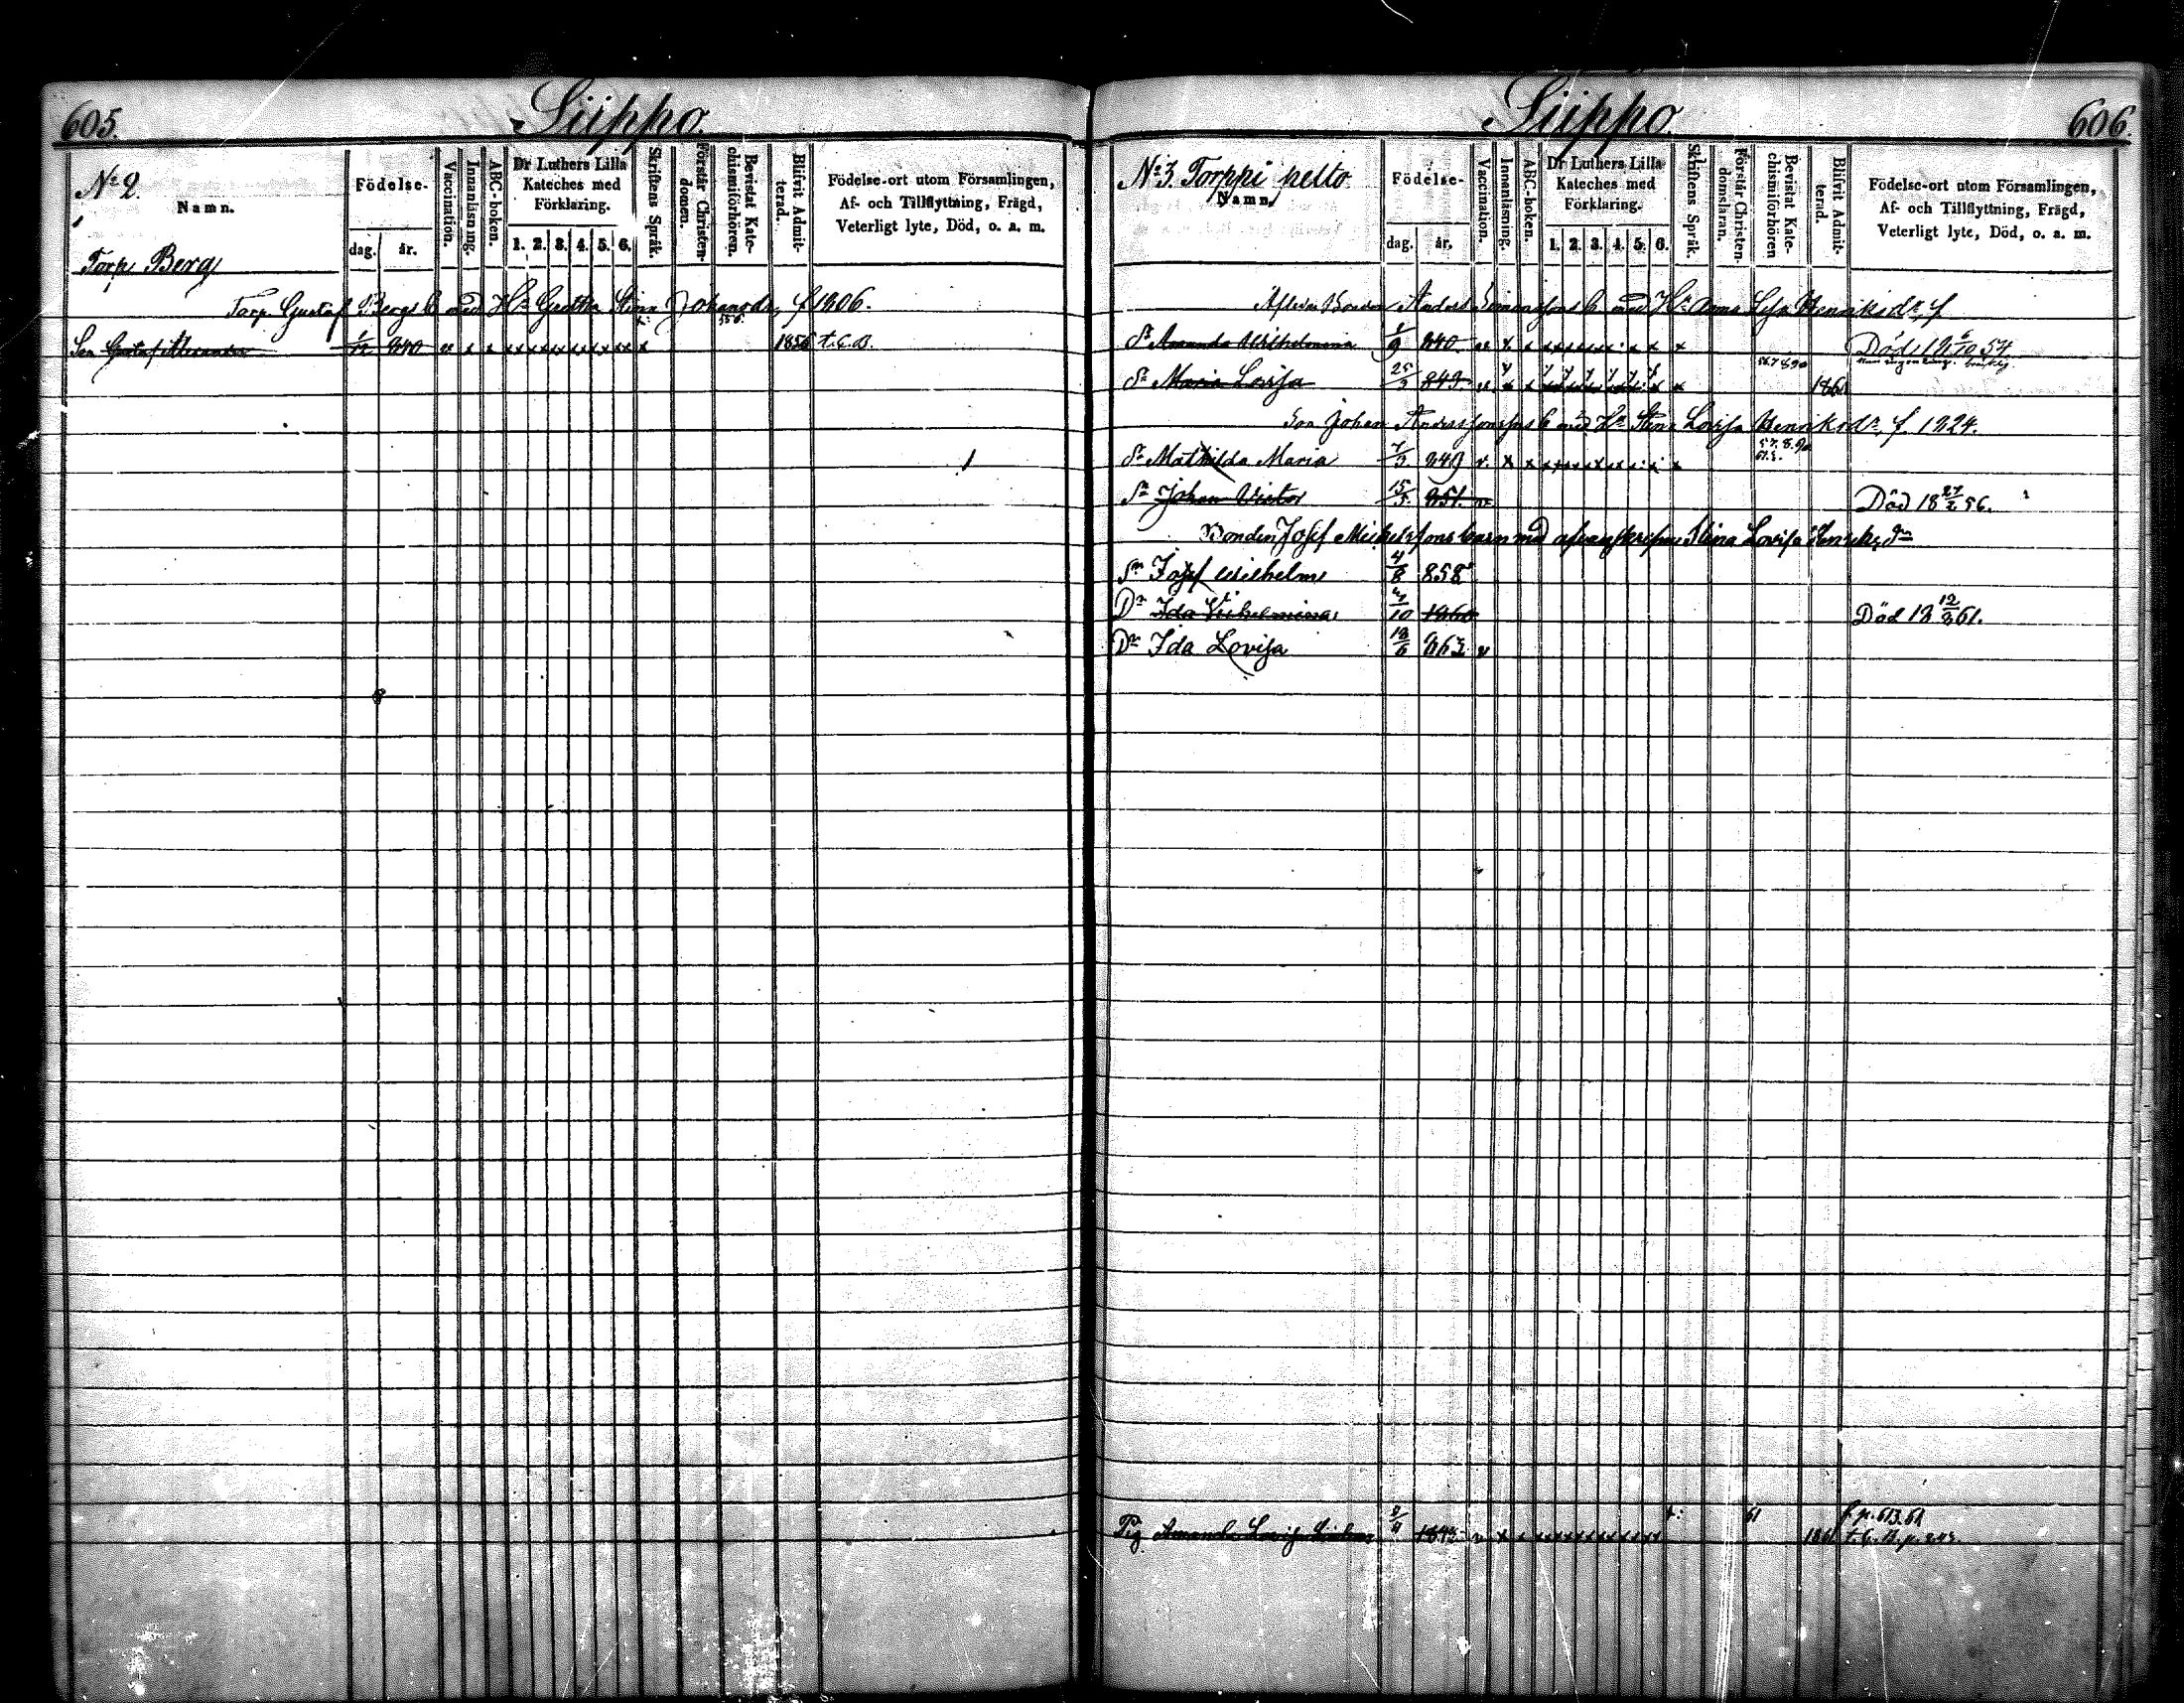 605.
Siippo.
No 2.
Namn.
Födelse-
dag.
år.
Vaccination.
Innanläsning.
ABC-boken.
Dr Luthers Lilla
Kateches med
Förklaring.
1. 2. 3. 4. 5. 6.
Skriftens Språk.
Förstår Christen-
domen.
Bevistat Kate-
chismiförhören.
Blifvit Admit-
terad.
Födelse-ort utom Församlingen,
Af- och Tillflyttning, Frägd,
Veterligt lyte, Död, o. a. m.
Torp Berg
Torp. Gustaf Bergs b med Hu Gretha Stina Johansdr, f 1806.
Son Gustaf Alexander 1/12 840 v x x x 1856 t.C.B.
Siippo.
606.
No 3. Torppi pelto
Namn.
Födelse-
dag.
år.
Vaccination.
Innanläsning.
ABC-boken.
Dr Luthers Lilla
Kateches med
Förklaring.
1. 2. 3. 4. 5. 6.
Skriftens Språk.
Förstår Christen-
domsläran.
Bevistat Kate-
chismiförhören
Blifvit Admit-
terad.
Födelse-ort utom Församlingen,
Af- och Tillflyttning, Frägd,
Veterligt lyte, Död, o. a. m.
Bonden Anders b med Hu Anna Henriksdr, f
Dr Amanda Wilhelmina 1/9 840 Död 18 6/10 54.
Dr Maria Lovisa 25/3 843 1860
Son Johan Anderssons b med Hu Stina Lovisa Henriksdr f. 1824.
Dr Mathilda Maria 7/3 849
Sn Johan Victor 15/5 851. Död 18 27/2 56.
Bonden Josef Michelssons barn med Stina Lovisa Henriksdr
Sn Josef Wilhelm 4/8 858
Dr Ida Wilhelmina 10 1860 Död 18 12/3 61.
Dr Ida Lovisa 863 v
61 f. p. 613. 61
Pig. Amanda Lovisa 1843 1861 t. C. B. p. 243.